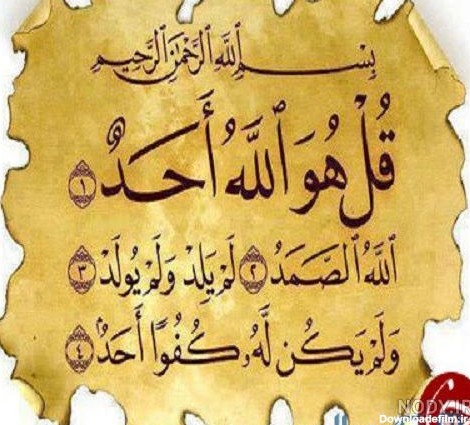 بِسْمِ ٱللَّهِ ٱلرَّحْمَٰنِ ٱلرَّحِيمِ
قُلْ هُوَ ٱللَّهُ أَحَدٌ ١
ٱللَّهُ ٱلصَّمَدُ ٢ لَمْ يَلِدْ وَلَمْ يُولَدْ ٣
وَلَمْ يَكُن لَّهُۥ كُفُوًا أَحَدٌۢ ٤
NODY.IR
Downloadefilm.ir